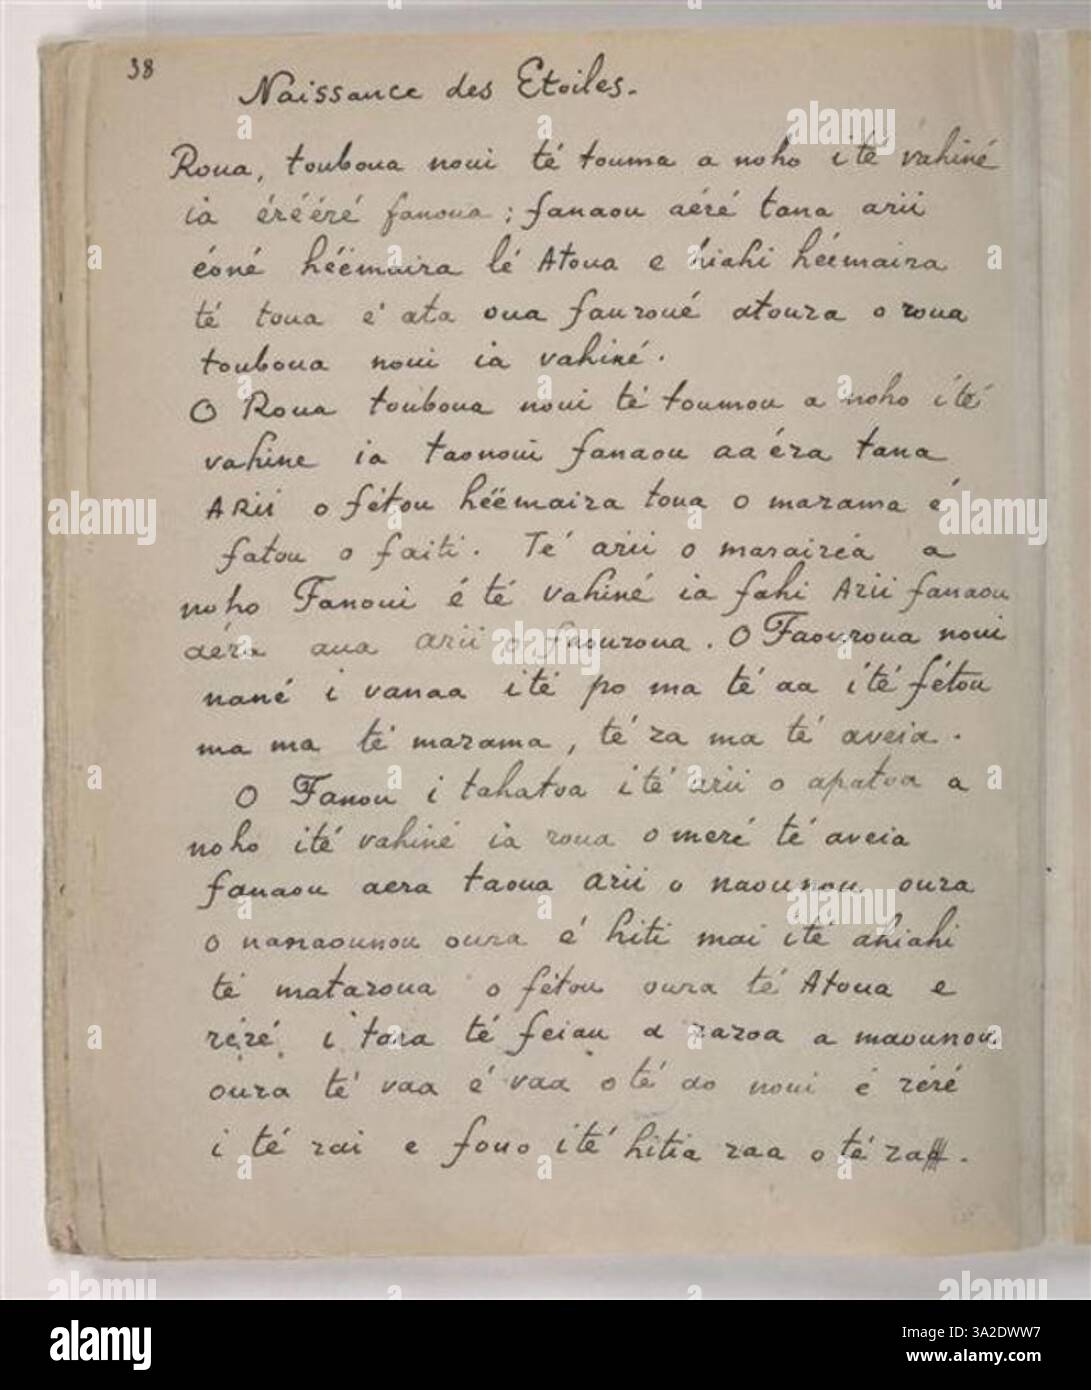 38
Naissance des Etoiles.
Roua, touboua noui té touma a noho i té vahiné
ia érééré fanoua ; fanaou aéré tana arii
éoné hëëmaira lé Atoua e ahiahi hëëmaira
té toua é ata oua fauroué atoura o roua
touboua noui ia vahiné.
O Roua touboua noui té toumou a noho i té
vahine ia taonoui fanaou aaéra tana
ARii o fétou hëëmaira toua o marama é
fatou o faiti. Té arii o maraireá a
noho Fanoui é té vahiné ia fahi Arii fanaou
aéra aua arii o faouroua. O Faouroua noui
nané i vanaa i té po ma té aa i té fétou
ma ma té marama, té ra ma té aveia.
O Fanou i tahatoa i té arii o apatoa a
noho i té vahiné ia roua o meré té aveia
fanaou aera taoua arii o naounou oura
o nanaounou oura é hiti mai i té ahiahi
té mataroua o fétou oura té Atoua e
réré i tara té feiau a raroa a maounou
oura té vaa é vaa o té ao noui é réré
i té rai e fouo i té hitia raa o té ra.
alamy
Image ID: 3A2DWW7
www.alamy.com